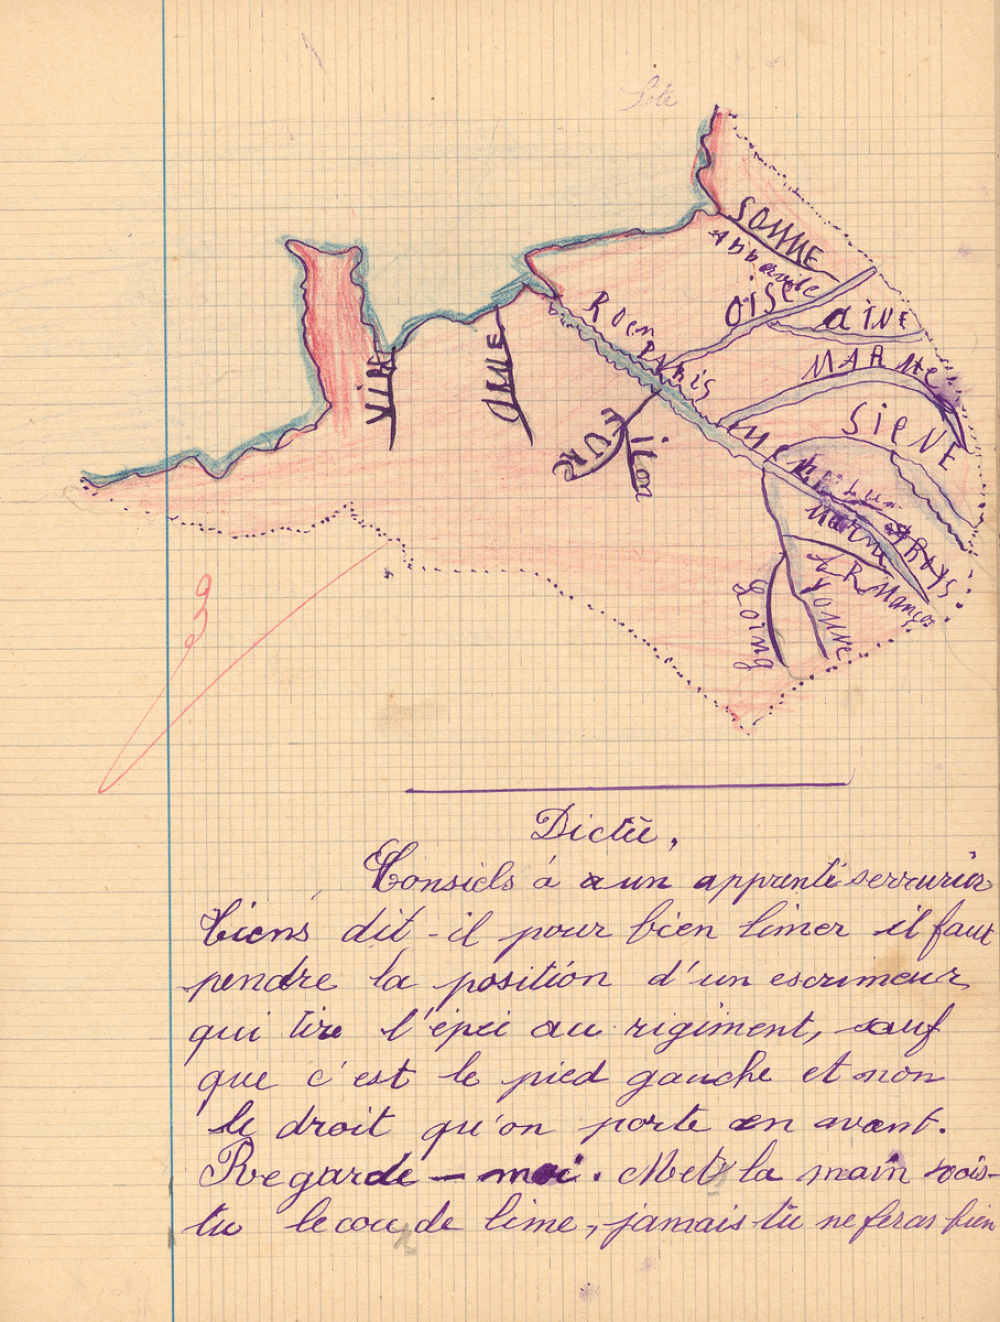 SOMME
Abbevile
OISE
AiNE
Roen
PARis
MARNe
SieNE
ViRe
ORNE
EURE
iton
Marne
TROYS
ARMançon
YONNE
Loing
3
Dictée,
Conseils à un apprenti serrurier
Tiens dit-il pour bien limer il faut
pendre la position d'un escrimeur
qui tire l'épée au régiment, sauf
que c'est le pied gauche et non
le droit qu'on porte en avant.
Regarde-moi. Met la main vois-
tu le cou de lime, jamais tu ne feras bien